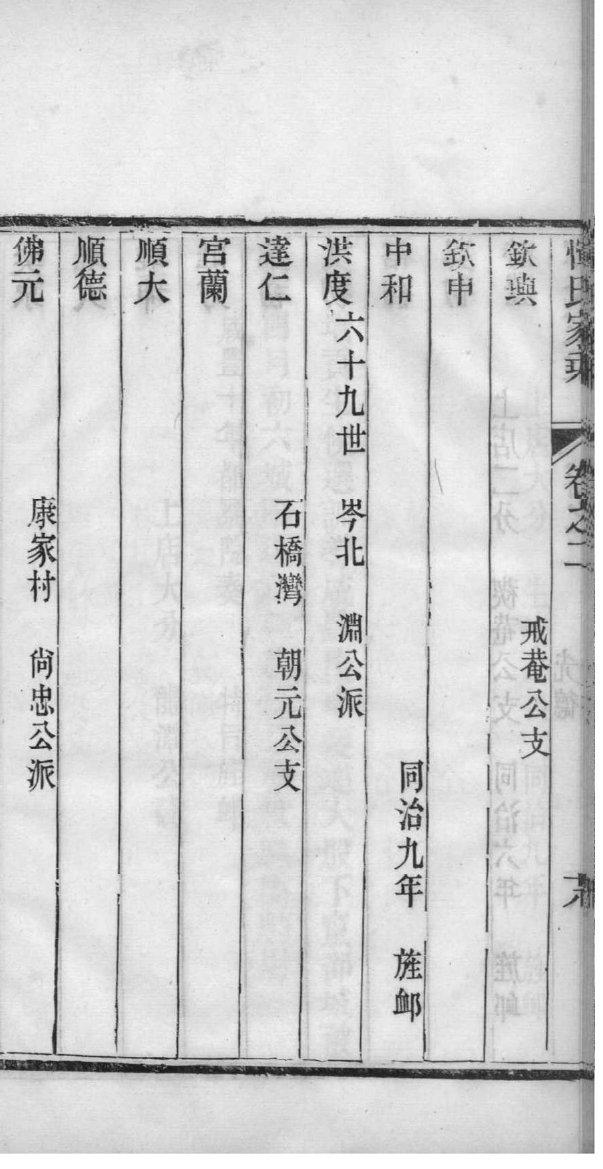 家乘
卷之二
欽璵　戒菴公支
欽申
中和　同治九年　旌卹
洪度　六十九世　岑北　淵公派
達仁　石橋灣　朝元公支
宮蘭
順大
順德
佛元　康家村　尙忠公派